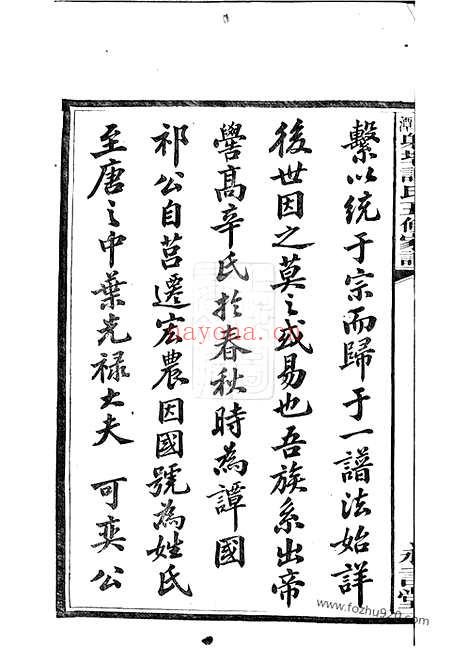 繫以統于宗而歸于一譜法始詳
後世因之莫之或易也吾族系出帝
嚳高辛氏於春秋時為譚國
祁公自莒遷宏農因國號為姓氏
至唐之中葉光祿大夫 可奕公
hayona.com
www.fozhu920.com